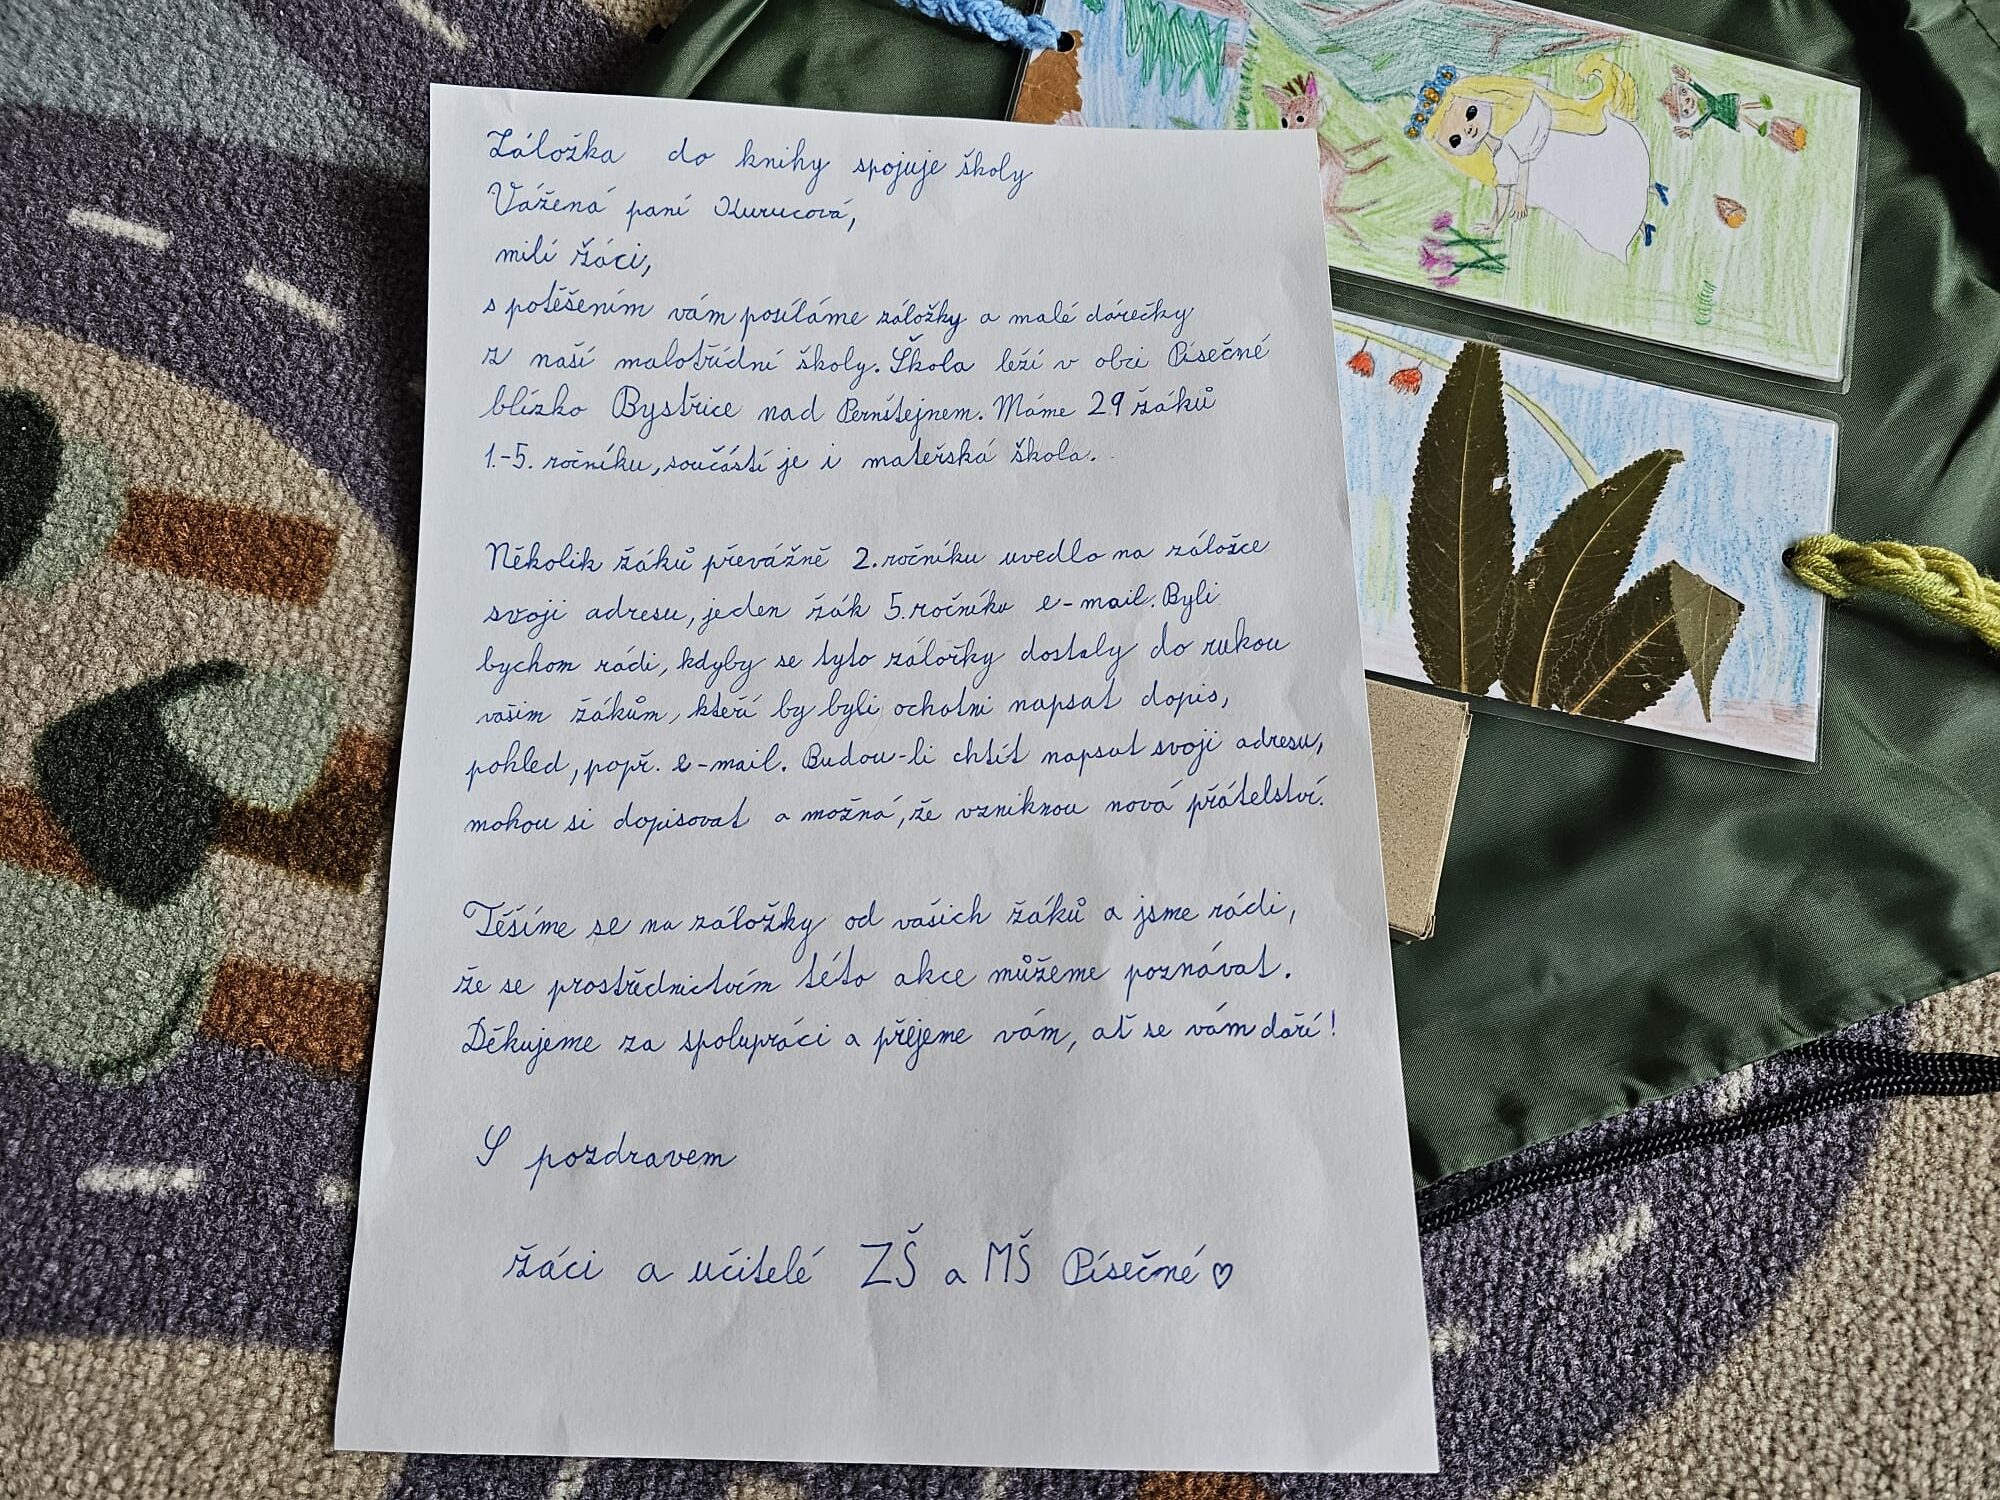 Záložka do knihy spojuje školy
Vážená paní Kurucová,
milí žáci,
s potěšením vám posíláme záložky a malé dárečky
z naší malotřídní školy. Škola leží v obci Písečné
blízko Bystřice nad Pernštejnem. Máme 29 žáků
1.-5. ročníku, součástí je i mateřská škola.
Několik žáků převážně 2. ročníku uvedlo na záložce
svoji adresu, jeden žák 5. ročníku e-mail. Byli
bychom rádi, kdyby se tyto záložky dostaly do rukou
vašim žákům, kteří by byli ochotni napsat dopis,
pohled, popř. e-mail. Budou-li chtít napsat svoji adresu,
mohou si dopisovat a možná, že vzniknou nová přátelství.
Těšíme se na záložky od vašich žáků a jsme rádi,
že se prostřednictvím této akce můžeme poznávat.
Děkujeme za spolupráci a přejeme vám, ať se vám daří!
S pozdravem
žáci a učitelé ZŠ a MŠ Písečné ♡